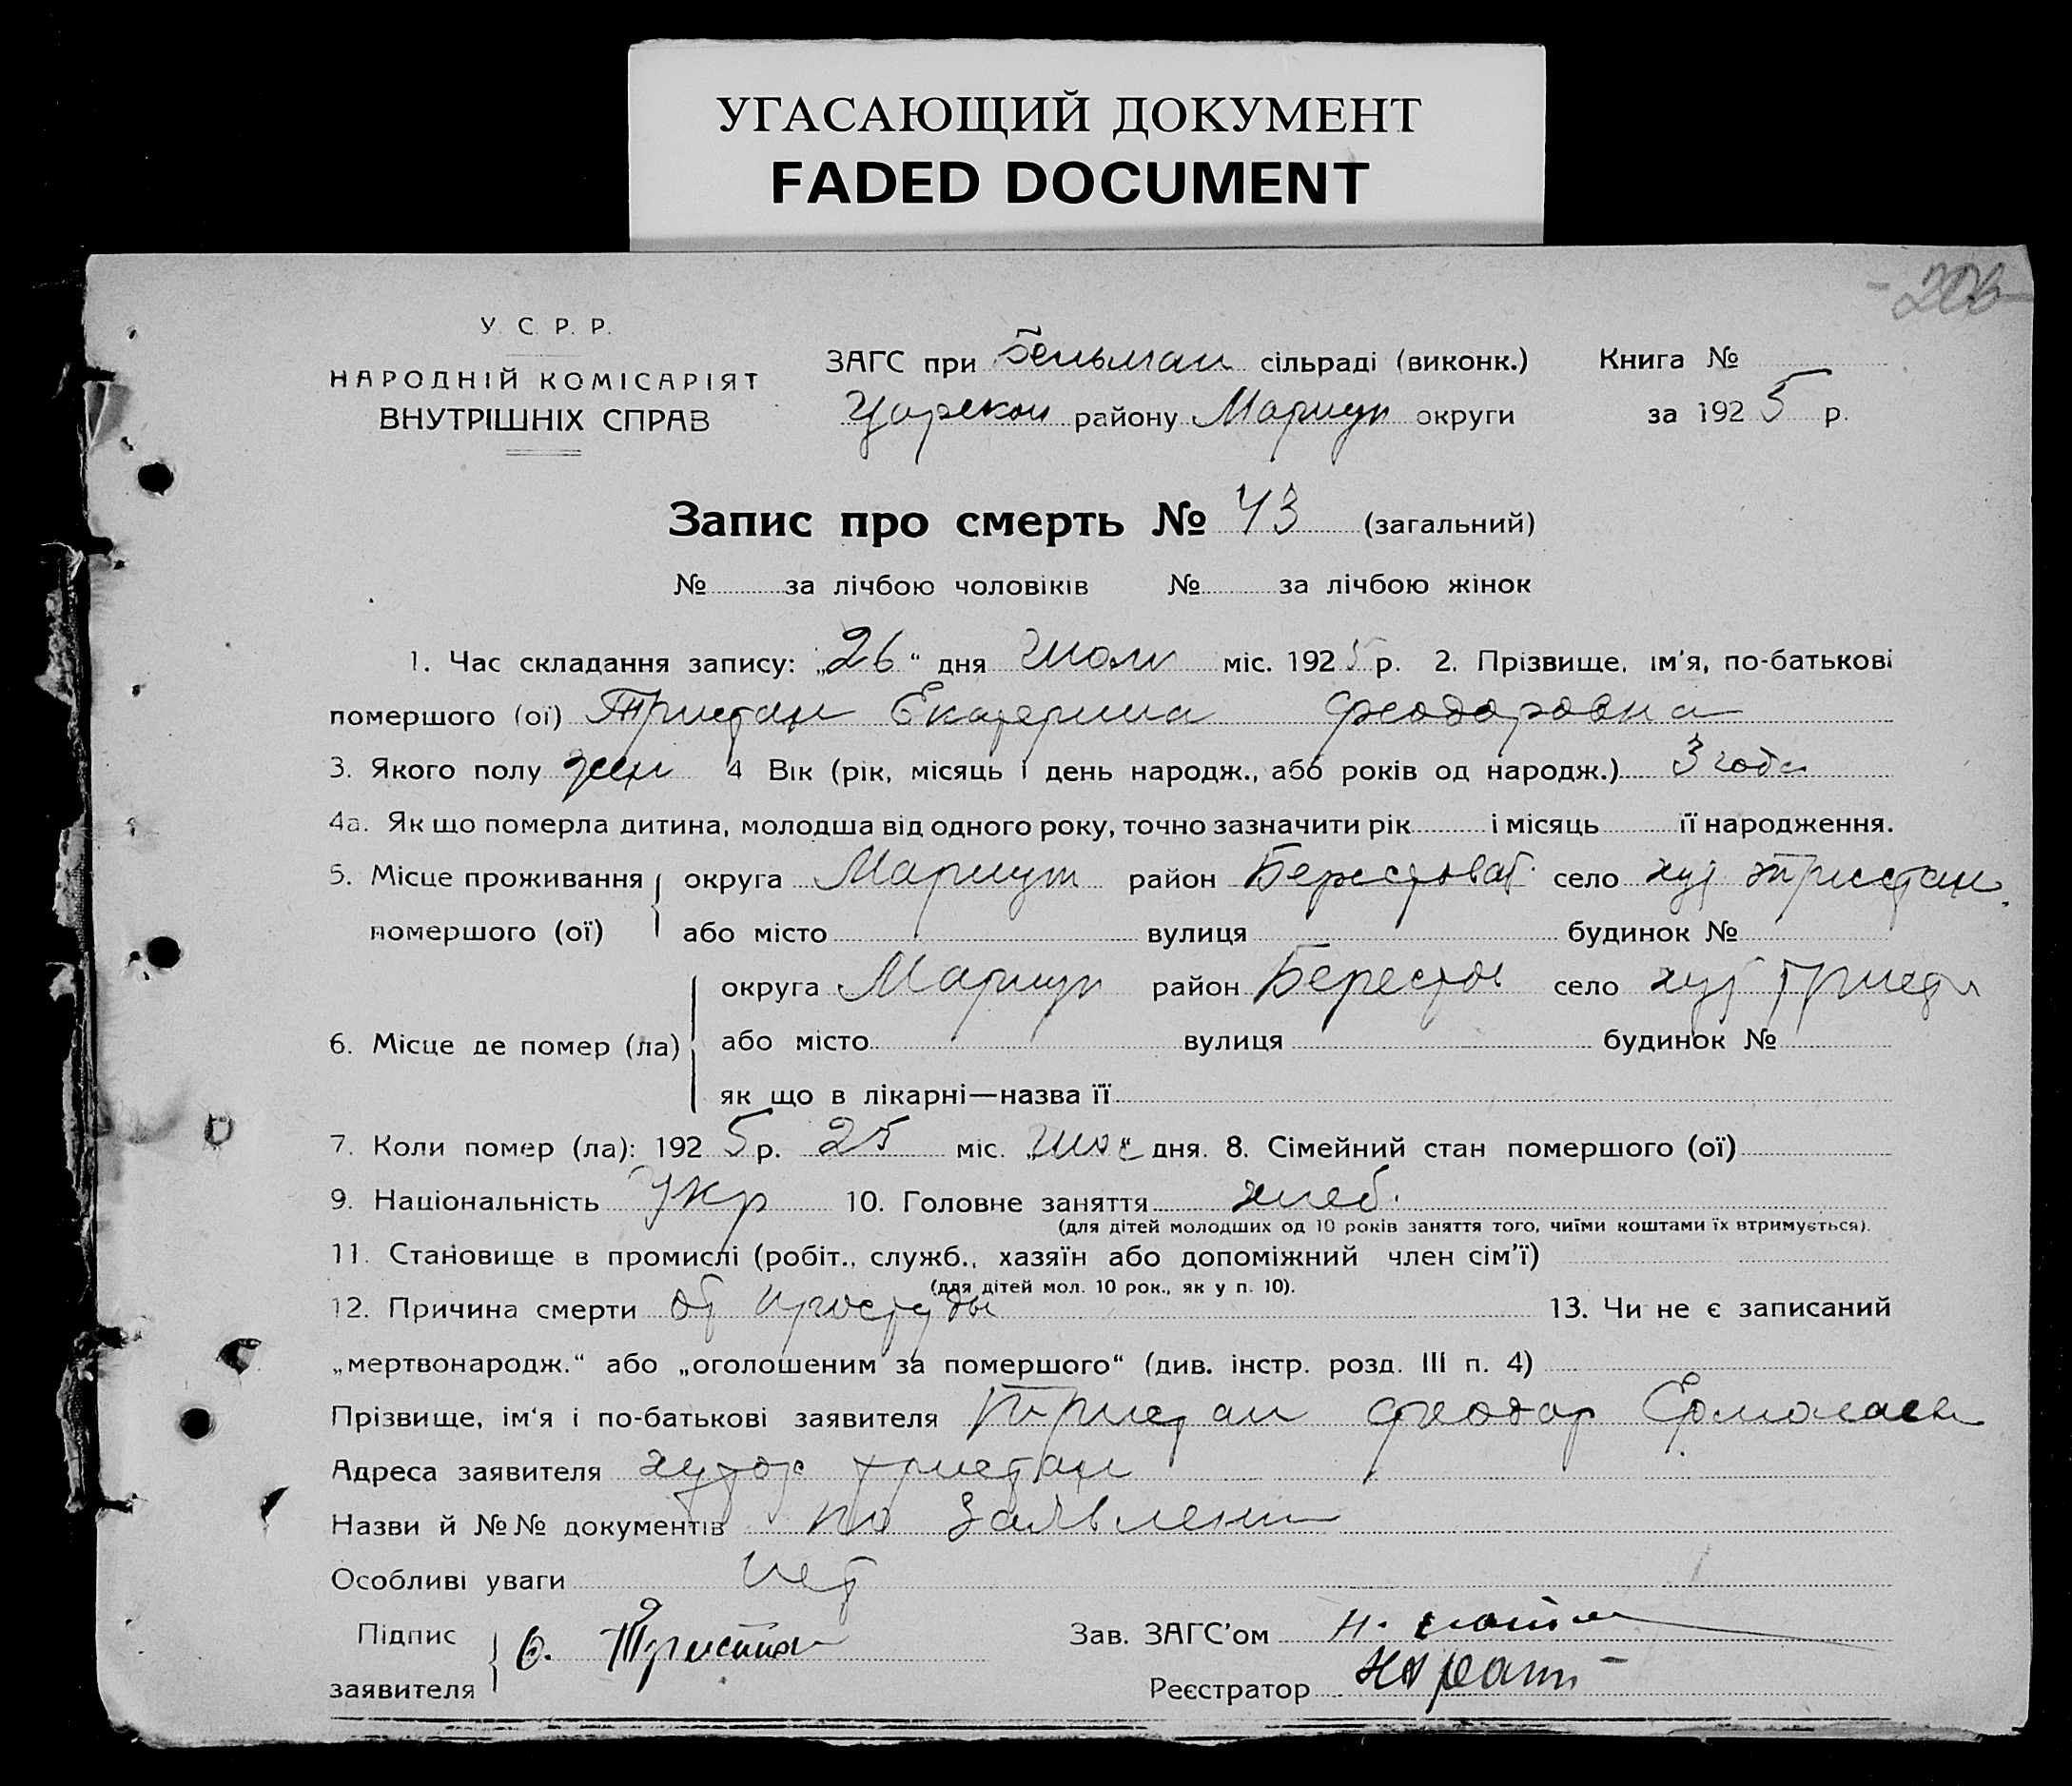 УГАСАЮЩИЙ ДОКУМЕНТ
FADED DOCUMENT
У. С. Р. Р.
НАРОДНІЙ КОМІСАРІЯТ
ВНУТРІШНІХ СПРАВ
ЗАГС при Бельман сільраді (виконк.) Книга №
Царекон району Мариуп округи за 1925 р.
Запис про смерть № 43 (загальний)
№ за лічбою чоловіків № за лічбою жінок
1. Час складання запису: „26“ дня Июля міс. 1925 р. 2. Прізвище, ім'я, по-батькові
помершого (ої) Тристан Екатерина Феодоровна
3. Якого полу жен 4 Вік (рік, місяць і день народж., або років од народж.) 3 года
4а. Як що померла дитина, молодша від одного року, точно зазначити рік і місяць її народження.
5. Місце проживання помершого (ої) округа Мариуп район Берестоват. село хут Тристан
або місто вулиця будинок №
6. Місце де помер (ла) округа Мариуп район Берестов село хут Тристан
або місто вулиця будинок №
як що в лікарні—назва її
7. Коли помер (ла): 1925 р. 25 міс. Июл дня. 8. Сімейний стан помершого (ої)
9. Національність Укр 10. Головне заняття хлеб.
(для дітей молодших од 10 років заняття того, чиїми коштами їх втримується).
11. Становище в промислі (робіт., служб., хазяїн або допоміжний член сім'ї)
(для дітей мол. 10 рок., як у п. 10).
12. Причина смерти от простуды 13. Чи не є записаний
„мертвонародж.“ або „оголошеним за помершого“ (див. інстр. розд. III п. 4)
Прізвище, ім'я і по-батькові заявителя Тристан Феодор Ермолаев
Адреса заявителя хутор Тристан
Назви й №№ документів по Заявлени
Особливі уваги нет
Підпис заявителя Ѳ. Тристан
Зав. ЗАГС'ом Н.
Реєстратор